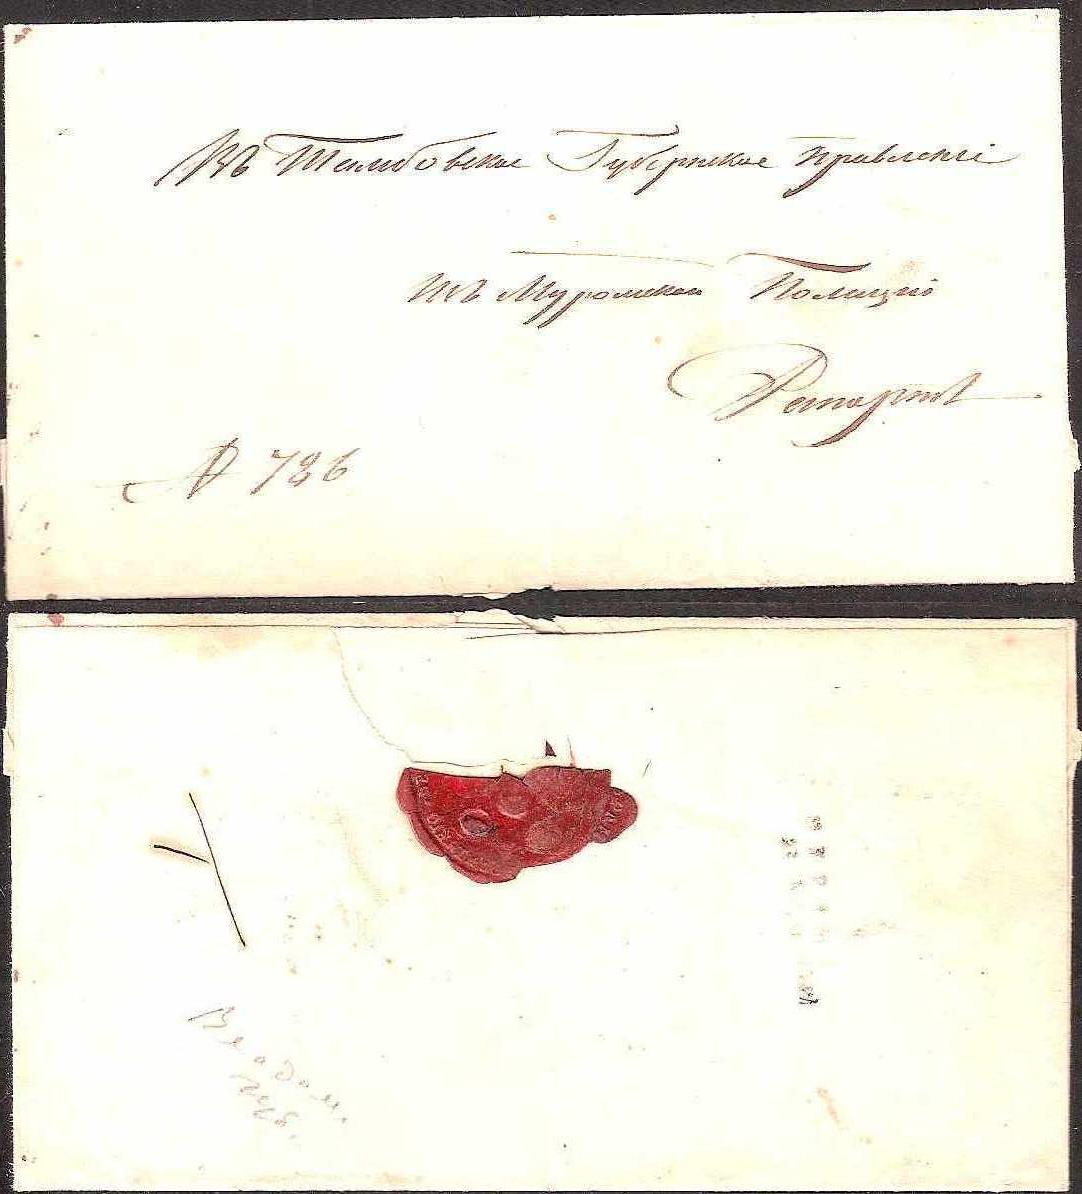 Въ Тамбовское Губернское правленiе
Изъ Муромской Полицiи
Рапортъ
№ 786
Владим.
губ.